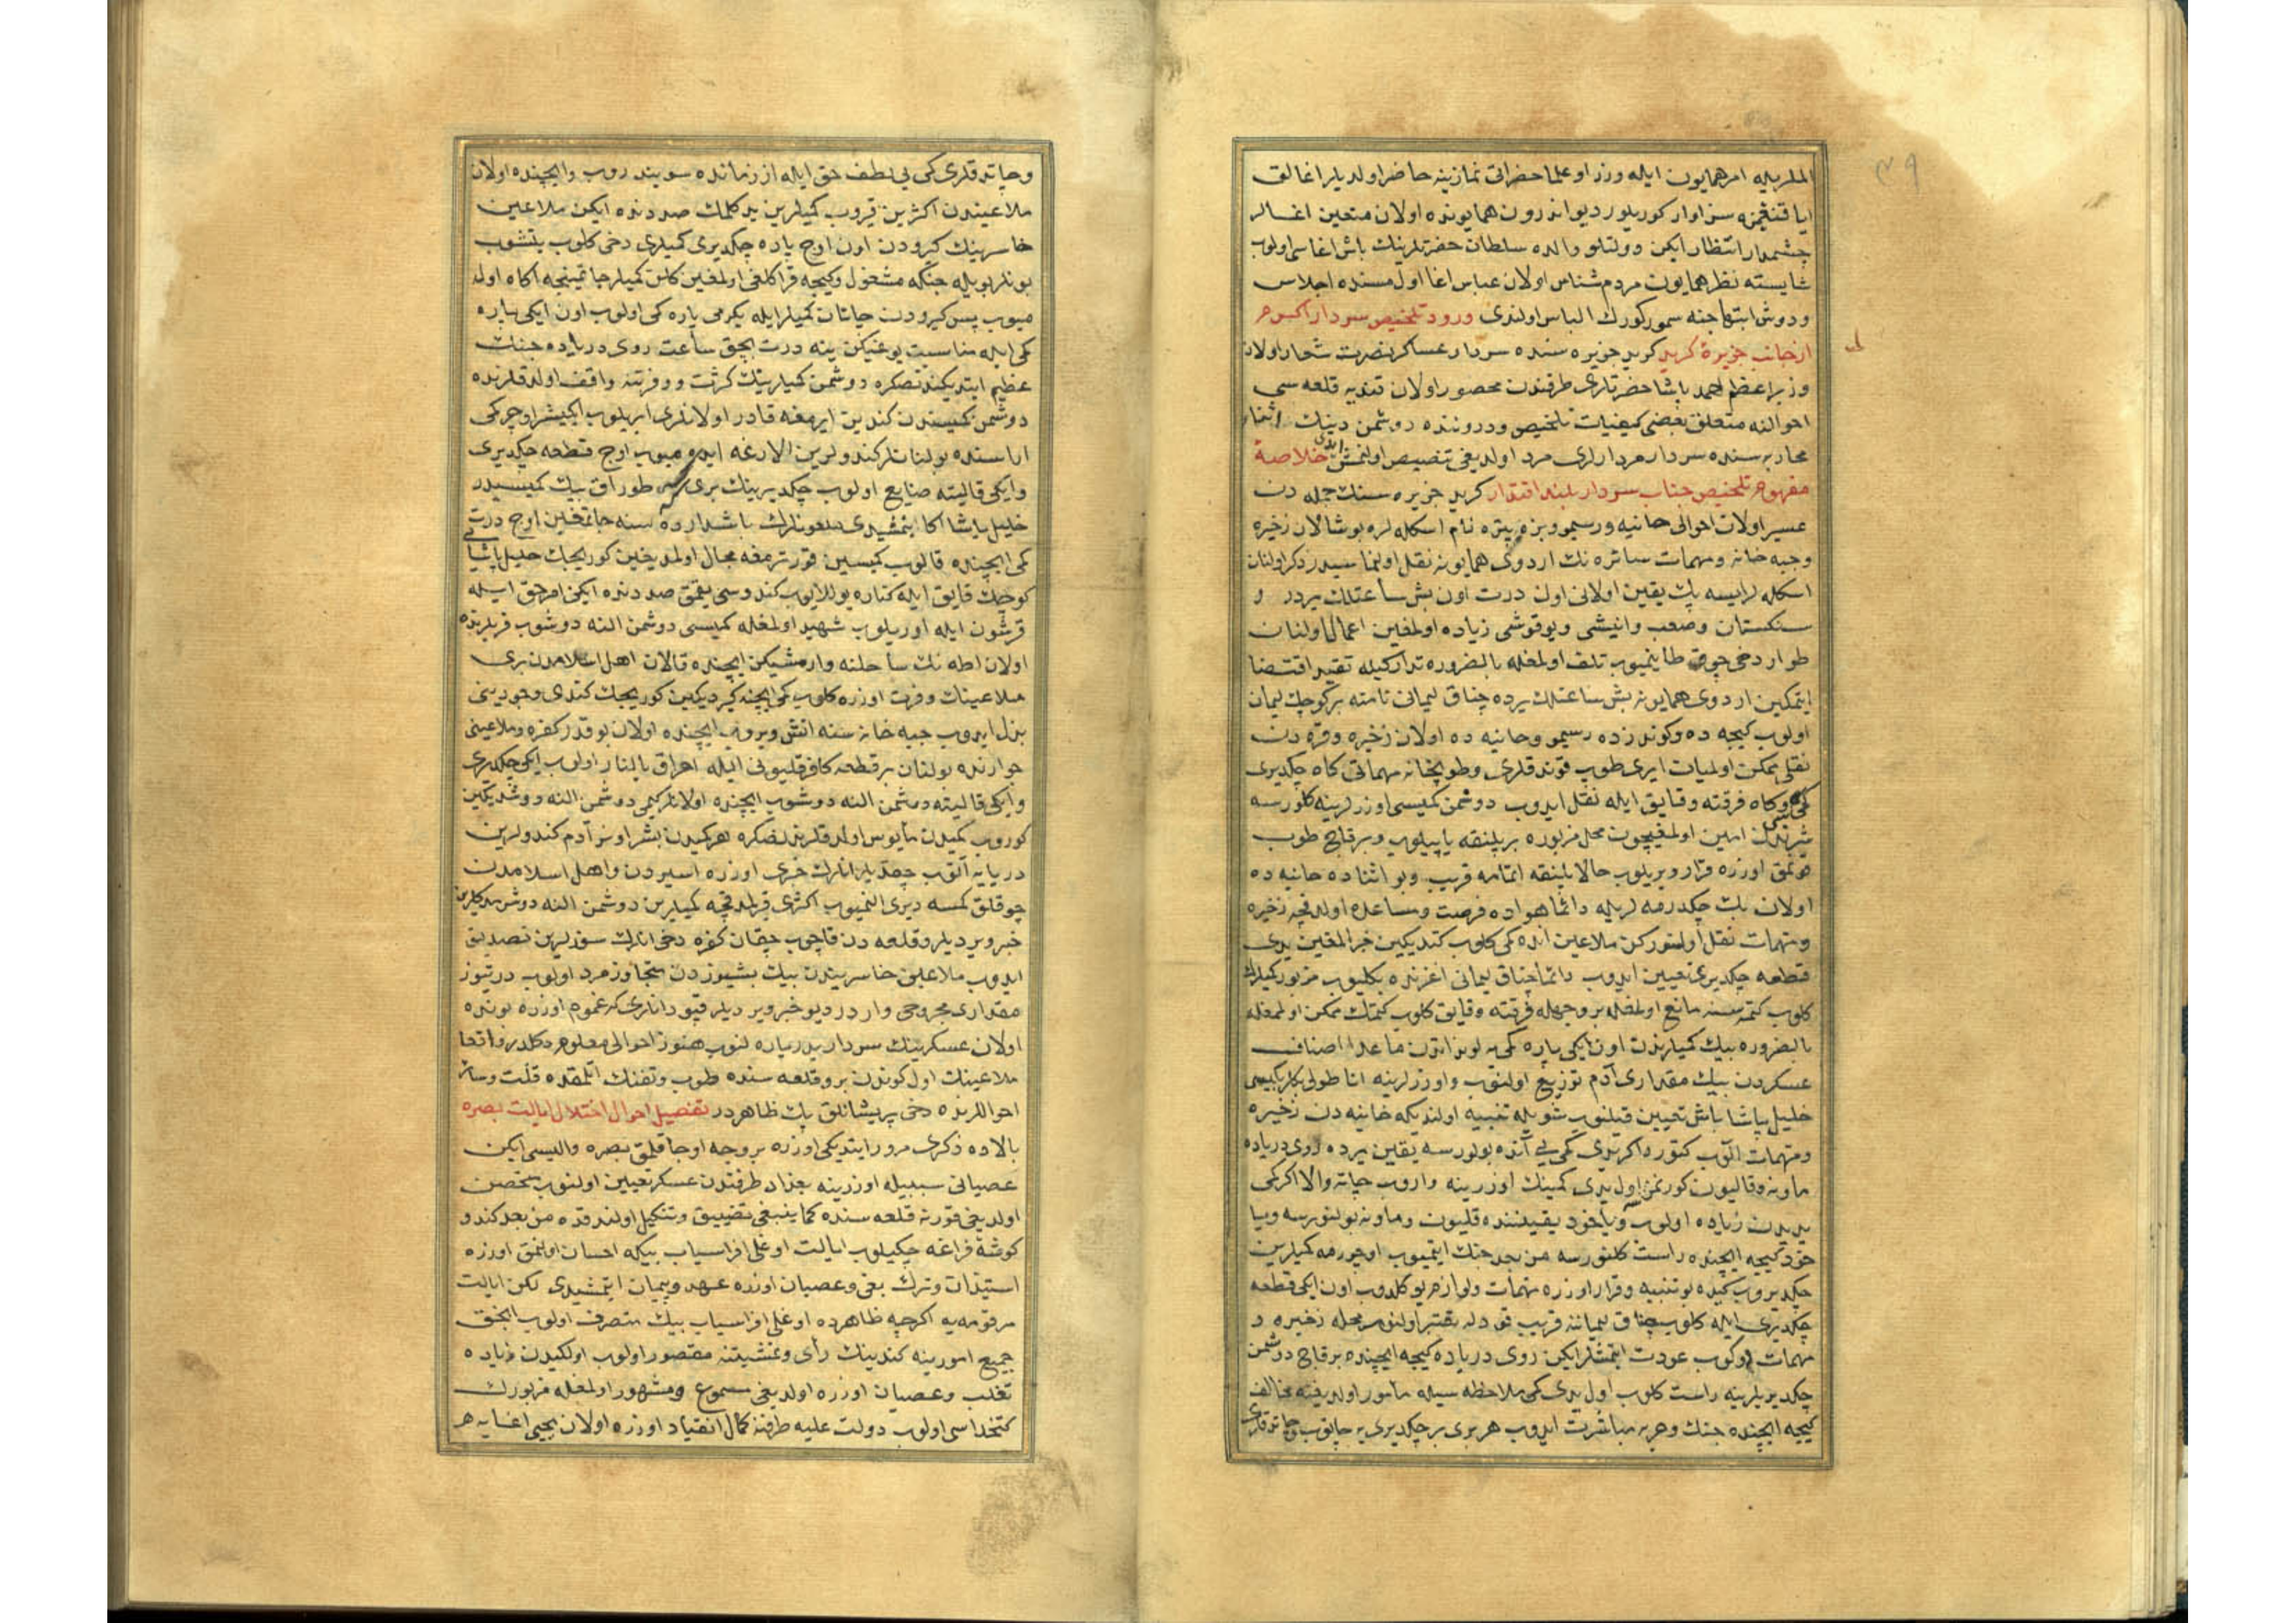 ۳۹
المله امر همایون ایله وزرا و علما حضراتی نمازینه حاضر اولدیلر اغالق
سزاوار کوریلور دیو اندرون همایونده اولان متعین اغالر
چشمدار انتظار ایکن دولتلو والده سلطان حضرتلرینك باش اغاسی اولوب
شایسته نظر همایون مردم شناس اولان عباس اغا اول مسنده اجلاس
ودوش ابتهاجنه سمور کورك الباس اولندی ورود تلخیص سردار اکرم
از جانب جزیرۀ کرید کرید جزیره سنده سردار عساکر نصرت شعار اولان
وزیر اعظم احمد پاشا حضرتلری طرفندن محصور اولان قندیه قلعه سی
احوالنه متعلق بعضی کیفیات تلخیص ودروننده دوشمن دینك اثناء
محاربه سنده سردار مردارلری مرد اولدیغی تنصیص اولنمش ایدی خلاصۀ
مفهوم تلخیص جناب سردار بلند اقتدار کرید جزیره سنك جمله دن
عسیر اولان احوالی حانیه ورسمو وبزه پتره نام اسکله لره بوشالان زخیره
وجبه خانه ومهمات سائره نك اردوی همایونه نقل اولنماسیدر ذکر اولنان
اسکله لر ایسه پك یقین اولانی اون درت اون بش ساعتلك یردر و
سنکستان وصعب وانیشی ویوقوشی زیاده اولمغین اعمال اولنان
طوار دخی چوق طاینمیوب تلف اولمغله بالضروره تدارکیله تقید اقتضا
ایتمکین اردوی همایونه بش ساعتلك یرده چناق لیمانی نامنه بر کوچك لیمان
اولوب کیجه ده وکوندزده رسمو وحانیه ده اولان زخیره وقره دن
نقلی ممکن اولمیان ایری طوب قوندقلری وطوپخانه مهماتی کاه چکدیری
کمیسی وکاه فرقته وقایق ایله نقل ایدوب دوشمن کمیسی اوزرلرینه کلورسه
شرندن امین اولمغیچون محل مزبوره بر پلنقه یاپیلوب وبر قاچ طوب
قونمق اوزره قرار ویریلوب حالا پلنقه اتمامه قریب وبو اثناده حانیه ده
اولان بك چکدرمه لریله دائما هواده فرصت ومساعده اولدقجه زخیره
ومهمات نقل اولنورکن ملاعین آنده کمی کلوب کتدیکین خبر المغین یدی
قطعه چکدیری تعیین ایدوب دائما چناق لیمانی اغزنده بکلیوب مزبور کمیلرك
کلوب کتمه سنه مانع اولمغله بر وجهله فرقته وقایق کلوب کتمك ممکن اولمغله
بالضروره بیك کمیلرندن اون ایکی پاره کمی یه لوندانندن ماعدا اصناف
عسکردن بیك مقداری آدم توزیع اولنوب واوزرلرینه اناطولی بکلربکیسی
خلیل پاشا باش تعیین قیلنوب شویله تنبیه اولندیکه حانیه دن زخیره
ومهمات الوب کتوره اکر یدی کمی یی آنده بولورسه یقین یرده روی دریاده
ماونه وقالیون کورنمز اول یدی کمینك اوزرینه واروب چاته والا اکر کمی
یدیدن زیاده اولوب ویاخود یقیننده قلیون وماونه بولنورسه ویا
خود کیجه ایچنده راست کلنورسه من بعد جنك ایتمیوب اوچورمه کمیلرین
چکدیروب کیده بو تنبیه وقرار اوزره مهمات ولوازم یوکلدوب اون ایکی قطعه
چکدیری ایله کلوب چناق لیماننه قریب قودله یقتبر اولنوب محله زخیره و
مهمات دوکوب عودت ایتمشلر ایکن روی دریاده کیجه ایچنده بر قاچ دوشمن
چکدیریلرینه راست کلوب اول یدی کمی ملاحظه سیله مأمور اولدیغنه مخالف
کیجه ایچنده جنك وحربه مباشرت ایدوب هر بری بر چکدیری یه چاتوب وچاتدقلری
وچاتدقلری کمی یی لطف حق ایله از زمانده سویندروب وایچنده اولان
ملاعیندن اکثرین قیروب کمیلرین یدکلمك صددنده ایکن ملاعین
خاسرینك کیرودن اون اوچ پاره چکدیری کمیلری دخی کلوب یتشوب
بونلر بویله جنکه مشغول وکیجه قراکلغی اولمغین کلن کمیلر چاتینجه آکاه اولـ
میوب پس کیرودن چاتان کمیلر ایله یکرمی پاره کمی اولوب اون ایکی پاره
کمی ایله مناسبت یوغیکن ینه درت بچق ساعت روی دریاده جنك
عظیم ایتدیکندنصکره دوشمن کمیلرینك کثرت ووفرتنه واقف اولدقلرنده
دوشمن کمیسندن کندین ایرمغه قادر اولانلری ایریلوب ایکیشر اوچر کمی
اراسنده بولنانلر کندولرین الارغه ایده میوب اوچ قطعه چکدیری
وایکی قالیته ضایع اولوب چکدیرینك بری طوراق بیك کمیسیدر
خلیل پاشا اکا بنمشیدی ملعونلرك باشدارده سنه چاتمغین اوچ درت
کمی ایچنده قالوب کمیسین قورترمغه مجال اولمدیغین کوریجك خلیل پاشا یی
کوچك قایق ایله کناره یوللایوب کندوسی یقمق صددنده ایکن امر حق ایله
قرشون ایله اوریلوب شهید اولمغله کمیسی دوشمن النه دوشوب قربلرنده
اولان اطه نك ساحلنه وارمشیکن ایچنده قالان اهل اسلامدن بری
ملاعینك وفرت اوزره کلوب کمی ایچنه کیردیکین کوریجك کندی وجودینی
بذل ایدوب جبه خانه سنه اتش ویروب ایچنده اولان بو قدر کفره وملاعینی
جوارنده بولنان بر قطعه کافر قلیونی ایله احراق بالنار اولوب ایکی چکدیری
وایکی قالیته دوشمن النه دوشوب ایچنده اولانلر کیمی دوشمن النه دوشدیکین
کوروب کمیدن مأیوس اولدقلرندنصکره هر کمیدن بشر اونر آدم کندولرین
دریایه آتوب چقدیلر انلرك خبری اوزره اسیردن واهل اسلامدن
چوقلق کمسه دیری النمیوب اکثری قیرلدقجه کمیلرین دوشمن النه دوشردکلرین
خبر ویردیلر وقلعه دن قاچوب چقان کفره دخی انلرك سوزلرین تصدیق
ایدوب ملاعین خاسریندن بیك بشیوزدن متجاوز مرد اولوب درتیوز
مقداری مجروحی واردر دیو خبر ویردیلر قپودانلری که عموم اوزره بونده
اولان عسکرینك سرداریدر یاره لنوب هنوز احوالی معلوم دکلدر واقعا
ملاعینك اول کوندن برو قلعه سنده طوب وتفنك اتمقده قلت وسائر
احواللرنده دخی پریشانلق پك ظاهردر تفصیل احوال اختلال ایالت بصره
بالاده ذکری مرور ایتدیکی اوزره بر وجه اوجاقلق بصره والیسی ایکن
عصیانی سببیله اوزرینه بغداد طرفندن عسکر تعیین اولنوب متحصن
اولدیغی قورنه قلعه سنده کما ینبغی تضییق وتنکیل اولندقده من بعد کندو
کوشۀ فراغه چکیلوب ایالت اوغلی افراسیاب بیکه احسان اولنمق اوزره
استیذان وترك بغی وعصیان اوزره عهد وپیمان ایتمشیدی لکن ایالت
مرقومه یه اکرچه ظاهرده اوغلی افراسیاب بیك متصرف اولوب انجق
جمیع امورینه کندینك رأی ومشیتنه مقصور اولوب اولکیدن زیاده
تغلب وعصیان اوزره اولدیغی مسموع ومشهور اولمغله مزبورك
کتخداسی اولوب دولت علیه طرفنه کمال انقیاد اوزره اولان یحیی اغایه هر